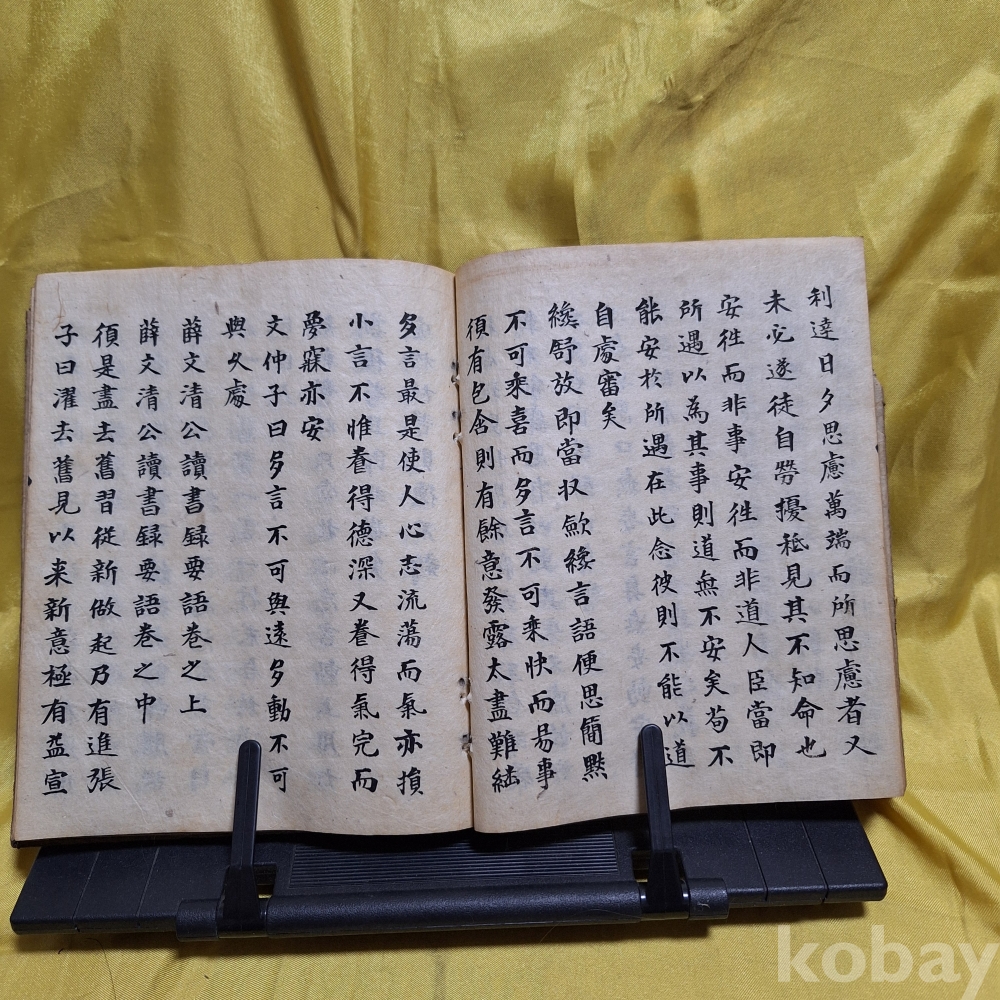 利達日夕思慮萬端而所思慮者又
未必遂徒自勞擾秪見其不知命也
安徃而非事安徃而非道人臣當即
所遇以為其事則道無不安矣苟不
能安於所遇在此念彼則不能以道
自處審矣
纔舒放即當収歛纔言語便思簡黙
不可乘喜而多言不可乗快而易事
須有包含則有餘意發露太盡難継
多言最是使人心志流蕩而氣亦損
小言不惟養得德深又養得氣完而
夢寐亦安
文仲子曰多言不可與遠多動不可
與久處
薛文清公讀書録要語卷之上
薛文清公讀書録要語卷之中
須是盡去舊習從新做起乃有進張
子曰濯去舊見以来新意極有益宣
kobay